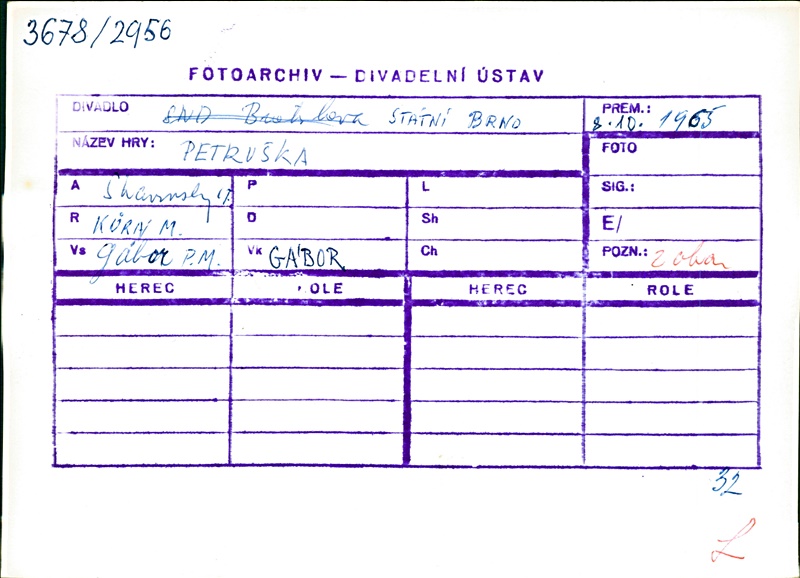 3678/2956
FOTOARCHIV — DIVADELNÍ ÚSTAV
DIVADLO SND Bratislava STÁTNÍ BRNO PREM.: 8.10. 1965
NÁZEV HRY: PETRUŠKA FOTO
A P L SIG.:
R KŮRN M. D Sh E/
Vs Gábor P.M. Vk GÁBOR Ch POZN.:
HEREC OLE HEREC ROLE
32
L